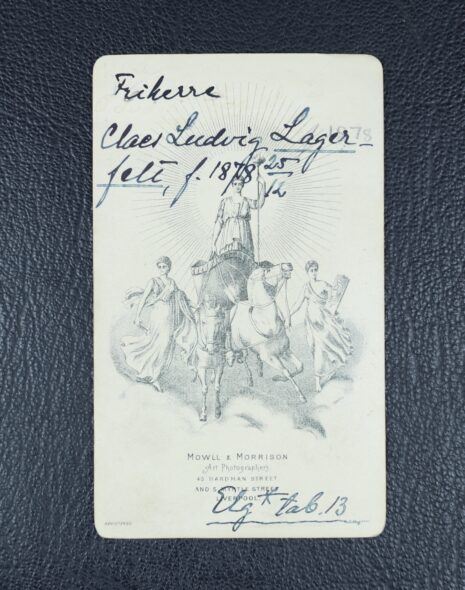 Friherre
Claes Ludvig Lager-
felt, f. 1878 25/12
78
MOWLL & MORRISON
Art Photographers.
43 HARDMAN STREET
AND 5, MYRTLE STREET
LIVERPOOL
Elg* tab. 13
REGISTERED